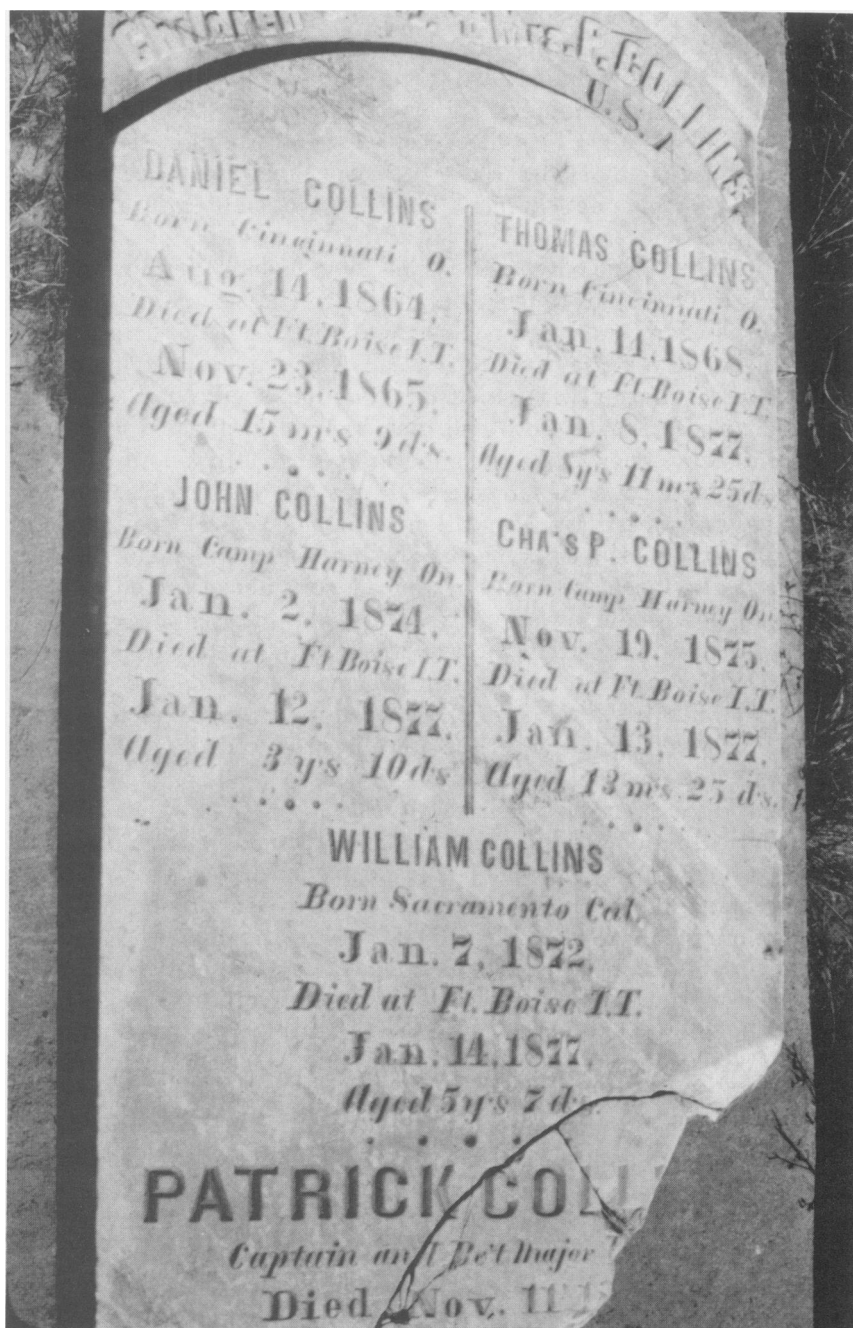 P. COLLINS,
U.S.A
DANIEL COLLINS
Born Cincinnati O.
Aug. 14, 1864,
Died at Ft. Boise I.T.
Nov. 23, 1865,
Aged 15 m's 9 ds.
JOHN COLLINS
Born Camp Harney On.
Jan. 2, 1874,
Died at Ft Boise I.T.
Jan. 12, 1877,
Aged 3 y's 10 d's
THOMAS COLLINS
Born Cincinnati O.
Jan. 11, 1868,
Died at Ft. Boise I.T.
Jan. 8, 1877,
Aged 8y's 11 m's 25 ds
CHA'S P. COLLINS
Born Camp Harney On
Nov. 19, 1875,
Died at Ft. Boise I.T.
Jan. 13, 1877,
Aged 13 m's 25 d's.
WILLIAM COLLINS
Born Sacramento Cal.
Jan. 7, 1872,
Died at Ft. Boise I.T.
Jan. 14, 1877,
Aged 5 y's 7 ds.
PATRICK COLL
Captain and Be't Major
Died Nov. 11